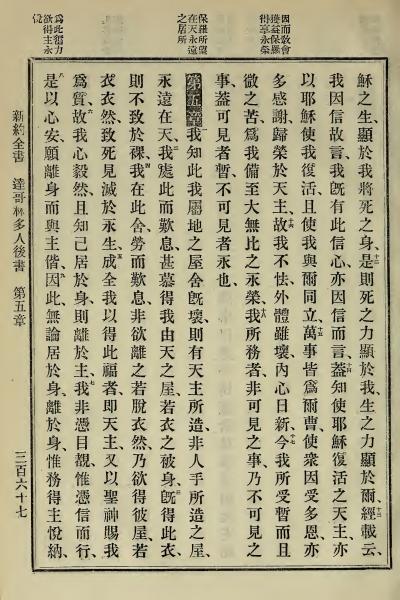 因而敎會
獲益保羅
得享永榮
保羅所望
在天永遠
之居所
爲此奮力
欲得主永
悅
穌之生、顯於我將死之身、十二是則死之力顯於我、生之力顯於爾、十三經載云、
我因信故言、我旣有此信心、亦因信而言、十四蓋知使耶穌復活之天主、亦
以耶穌使我復活、且使我與爾同立、十五萬事皆爲爾曹、使衆因受多恩、亦
多感謝、歸榮於天主、十六故我不怯、外體雖壞、內心日新、十七今我所受暫而且
微之苦、爲我備至大無比之永榮、十八我所務者、非可見之事、乃不可見之
事、蓋可見者暫、不可見者永也、
第五章 一我知此我屬地之屋舍旣壞、則有天主所造、非人手所造之屋、
永遠在天、二我處此而歎息、甚慕得我由天之屋、若衣之被身、三旣得此衣、
則不致於裸、四我在此舍、勞而歎息、非欲離之若脫衣然、乃欲得彼屋若
衣衣然、致死見滅於永生、五成全我以得此福者、卽天主、又以聖神賜我
爲質、六故我心毅然、且知己居於身、則離於主、七我非憑目覩、惟憑信而行、
八是以心安、願離身而與主偕、九因此無論居於身、離於身、惟務得主悅納、
新約全書 達哥林多人後書 第五章 三百六十七